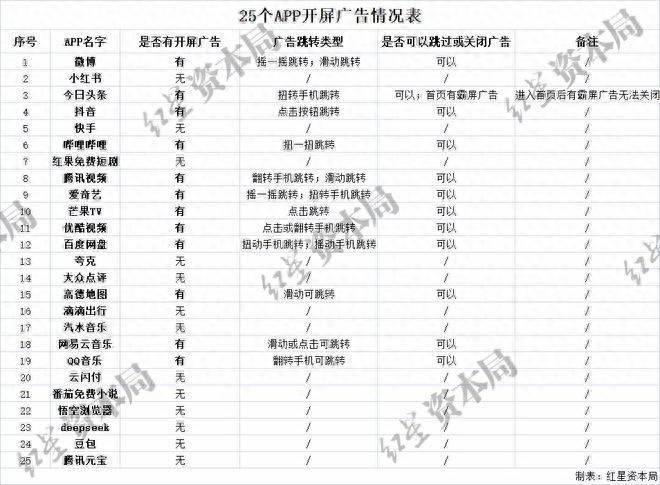 25个APP开屏广告情况表
序号 APP名字 是否有开屏广告 广告跳转类型 是否可以跳过或关闭广告 备注
1 微博 有 摇一摇跳转；滑动跳转 可以 /
2 小红书 无 / / /
3 今日头条 有 扭转手机跳转 可以；首页有霸屏广告 进入首页后有霸屏广告无法关闭
4 抖音 有 点击按钮跳转 可以 /
5 快手 无 / / /
6 哔哩哔哩 有 扭一扭跳转 可以 /
7 红果免费短剧 无 / / /
8 腾讯视频 有 翻转手机跳转；滑动跳转 可以 /
9 爱奇艺 有 摇一摇跳转；扭转手机跳转 可以 /
10 芒果TV 有 点击跳转 可以 /
11 优酷视频 有 点击或翻转手机跳转 可以 /
12 百度网盘 有 扭动手机跳转；摇动手机跳转 可以 /
13 夸克 无 / / /
14 大众点评 无 / / /
15 高德地图 有 滑动可跳转 可以 /
16 滴滴出行 无 / / /
17 汽水音乐 无 / / /
18 网易云音乐 有 滑动或点击可跳转 可以 /
19 QQ音乐 有 翻转手机可跳转 可以 /
20 云闪付 无 / / /
21 番茄免费小说 无 / / /
22 悟空浏览器 无 / / /
23 deepseek 无 / / /
24 豆包 无 / / /
25 腾讯元宝 无 / / /
制表：红星资本局
红星资本局
红星资本局
红星资本局
红星资本局
红星资本局